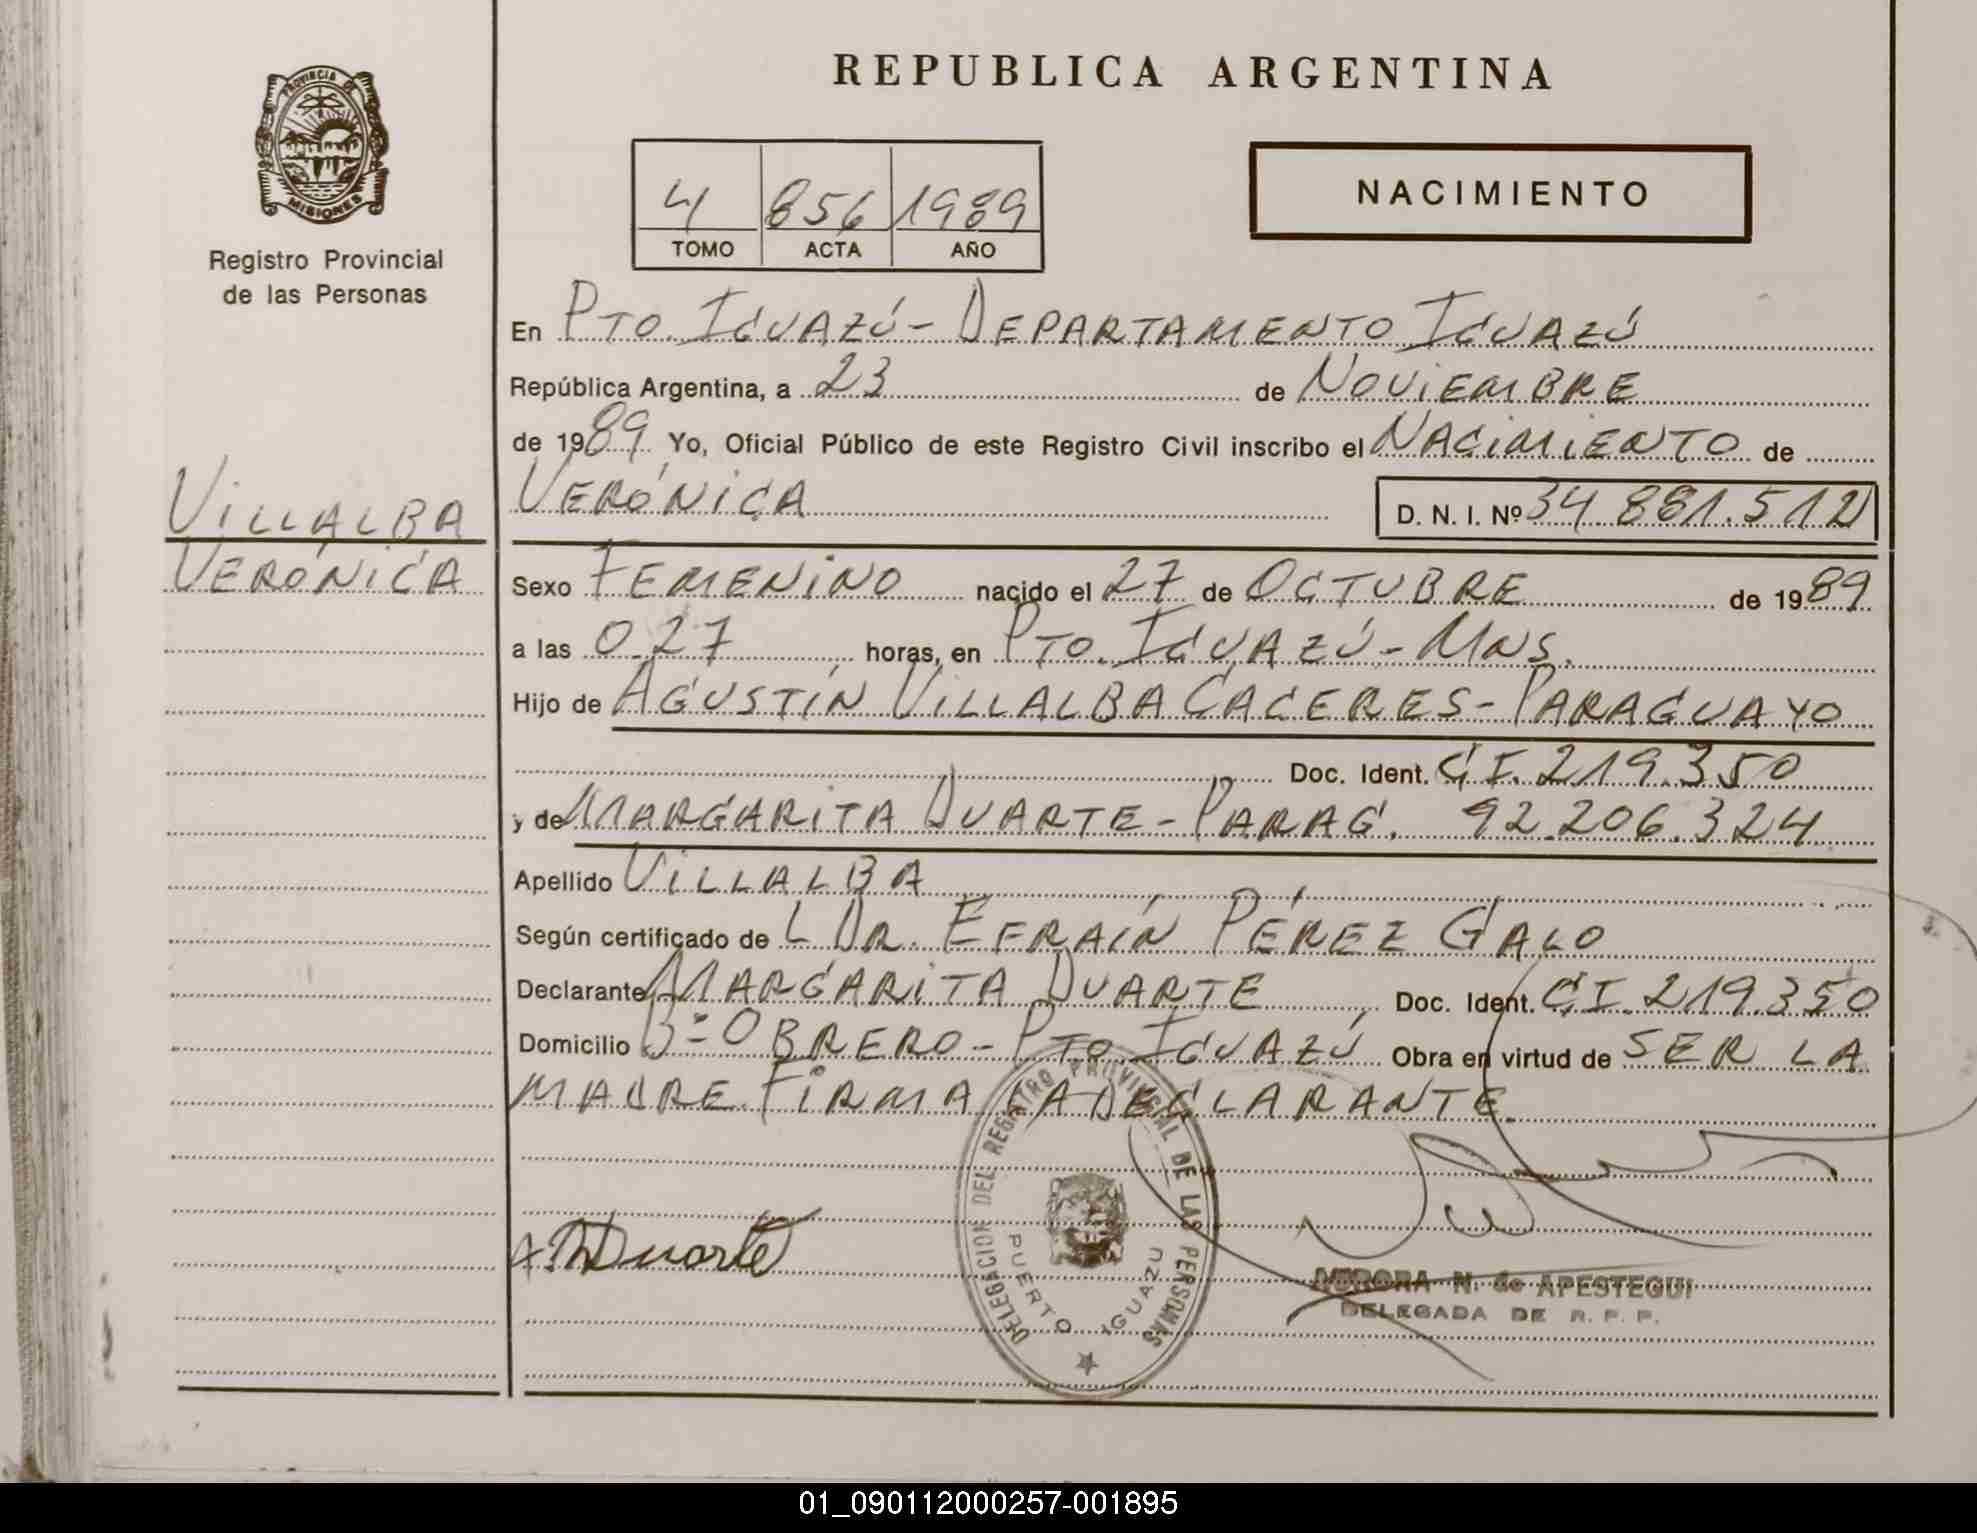 REPUBLICA ARGENTINA
PROVINCIA DE
MISIONES
Registro Provincial
de las Personas
4 856 1989
TOMO ACTA AÑO
NACIMIENTO
En PTO. IGUAZÚ - DEPARTAMENTO IGUAZÚ
República Argentina, a 23 de NOVIEMBRE
de 1989 Yo, Oficial Público de este Registro Civil inscribo el NACIMIENTO de
VERÓNICA D. N. I. Nº 34 881.512
VILLALBA
VERÓNICA
Sexo FEMENINO nacido el 27 de OCTUBRE de 1989
a las 0.27 horas, en PTO. IGUAZÚ - MNS.
Hijo de AGUSTÍN VILLALBA CACERES - PARAGUAYO
Doc. Ident. C.I. 219.350
y de MARGARITA DUARTE - PARAG. 92.206.324
Apellido VILLALBA
Según certificado de L DR. EFRAÍN PÉREZ GALO
Declarante MARGARITA DUARTE Doc. Ident. C.I. 219.350
Domicilio Bº OBRERO - PTO. IGUAZÚ Obra en virtud de SER LA
MADRE. FIRMA LA DECLARANTE.
DELEGACION DEL REGISTRO PROVINCIAL DE LAS PERSONAS
PUERTO IGUAZU
Duarte
AURORA N. de APESTEGUI
DELEGADA DE R. P. P.
01_090112000257-001895